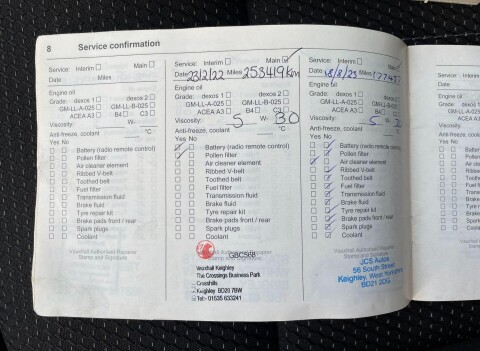 8 Service confirmation
Service: Interim Main
Date Miles
Engine oil
Grade: dexos 1 dexos 2
GM-LL-A-025 GM-LL-B-025
ACEA A3 B4 C3
Viscosity: W-
Anti-freeze, coolant °C
Yes No
Battery (radio remote control)
Pollen filter
Air cleaner element
Ribbed V-belt
Toothed belt
Fuel filter
Transmission fluid
Brake fluid
Tyre repair kit
Brake pads front / rear
Spark plugs
Coolant
Vauxhall Authorised Repairer
Stamp and Signature
Service: Interim Main
Date 23/2/22 Miles 253419km
Engine oil
Grade: dexos 1 dexos 2
GM-LL-A-025 GM-LL-B-025
ACEA A3 B4 C3
Viscosity: 5 W- 30
Anti-freeze, coolant °C
Yes No
Battery (radio remote control)
Pollen filter
Air cleaner element
Ribbed V-belt
Toothed belt
Fuel filter
Transmission fluid
Brake fluid
Tyre repair kit
Brake pads front / rear
Spark plugs
Coolant
GBC568
Vauxhall Keighley
The Crossings Business Park
Crosshills
Keighley BD20 7BW
Tel:- 01535 633241
Service: Interim Main
Date Miles
Engine oil
Grade: dexos 1 dexos 2
GM-LL-A-025 GM-LL-B-025
ACEA A3 B4 C3
Viscosity: 5
Anti-freeze, coolant °C
Yes No
Battery (radio remote control)
Pollen filter
Air cleaner element
Ribbed V-belt
Toothed belt
Fuel filter
Transmission fluid
Brake fluid
Tyre repair kit
Brake pads front / rear
Spark plugs
Coolant
Vauxhall Authorised Repairer
Stamp and Signature
JCS Autos
56 South Street
Keighley, West Yorkshire
BD21 2DG